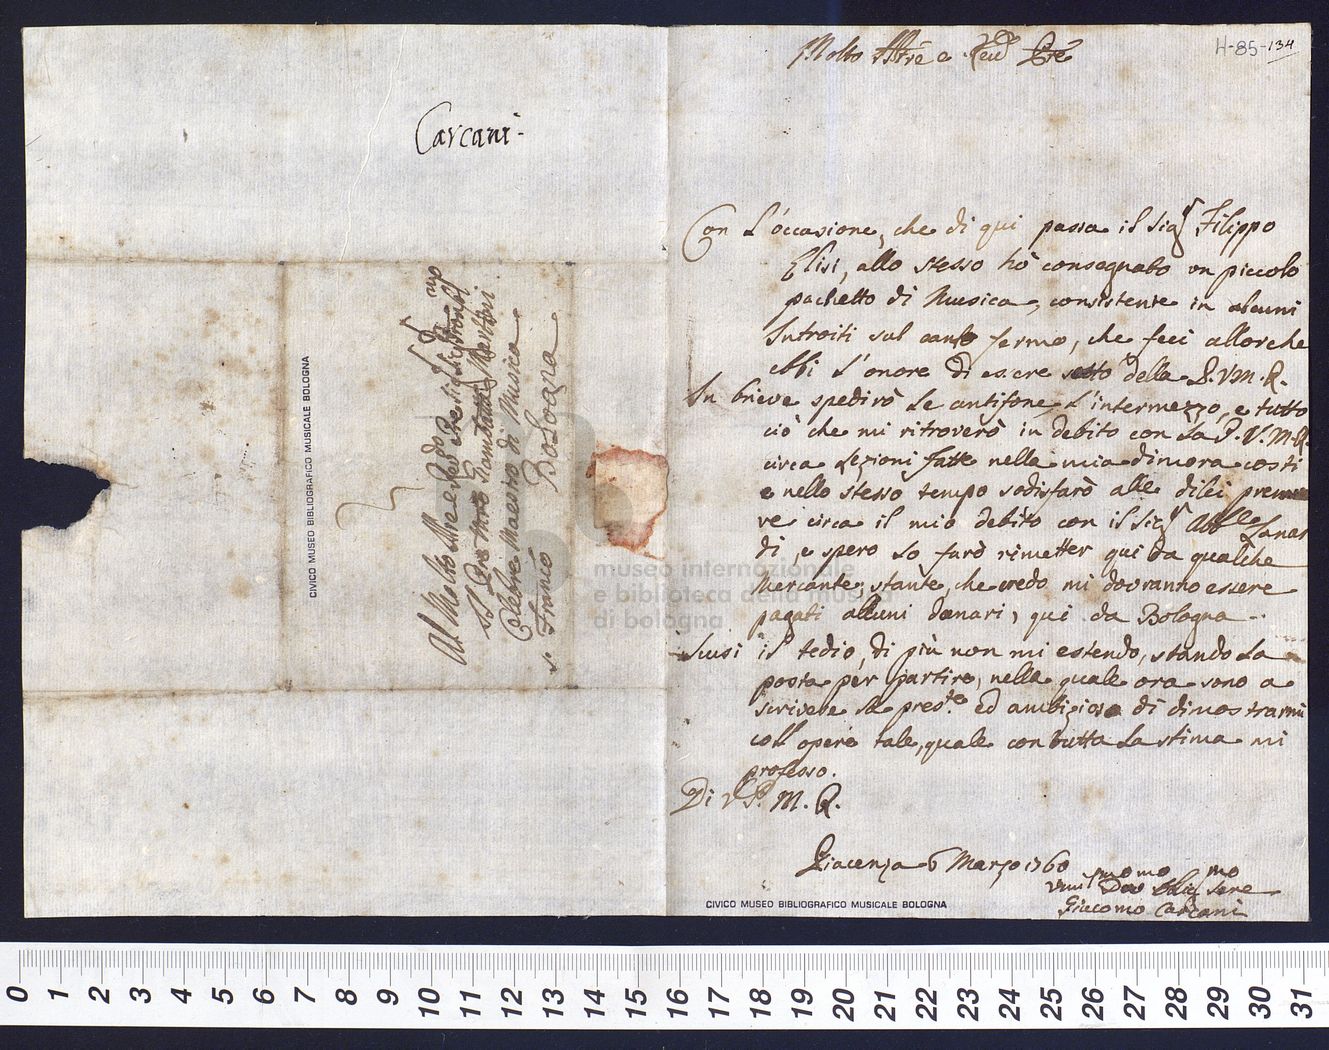 Carcani-
Al Molto Mre e Rev.do
Pne Mro Giambatta Martini
Celebre Maestro di Musica
S. Franco Bologna
CIVICO MUSEO BIBLIOGRAFICO MUSICALE BOLOGNA
H-85-134
Molto Illre e Revd Pre
Con l'occasione, che di qui passa il Sigr Filippo
Elisi, allo stesso hò consegnato un piccolo
pachetto di Musica, consistente in alcuni
Introiti sul canto fermo, che feci allorche
ebbi l'onore di essere sotto della P.V.M.R.
In brieve spedirò le antifone, l'intermezzo, e tutto
ciò che mi ritroverò in debito con la P.V.M.R.
circa lezioni fatte nella mia dimora costi
e nello stesso tempo sodisfarò alle dilei premu
re circa il mio debito con il Sigr Abbe Zanar
di, e spero lo farò rimetter qui da qualche
Mercante, stante, che credo mi dovranno essere
pagati alcuni danari, qui da Bologna-
Scusi il tedio, di più non mi estendo, stando la
posta per partire, nella quale ora sono a
scrivere la preste. Ed ambizioso di dimostrarmi
coll'opere tale, quale con tutta la stima mi
professo.
Di V.P.M.R.
Piacenza 6 Marzo 1760
Umilmo Devmo Obligmo Sere
Giacomo Carcani
CIVICO MUSEO BIBLIOGRAFICO MUSICALE BOLOGNA
museo internazionale
e biblioteca della musica
di bologna
0 1 2 3 4 5 6 7 8 9 10 11 12 13 14 15 16 17 18 19 20 21 22 23 24 25 26 27 28 29 30 31